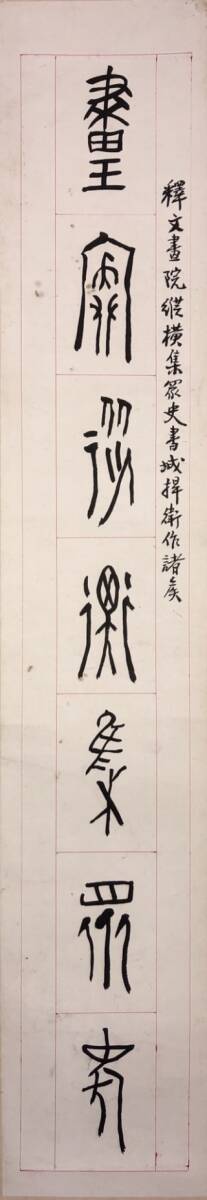 釋文畫院縱橫集眾史書城捍衛作諸矦
畫院縱橫集眾史